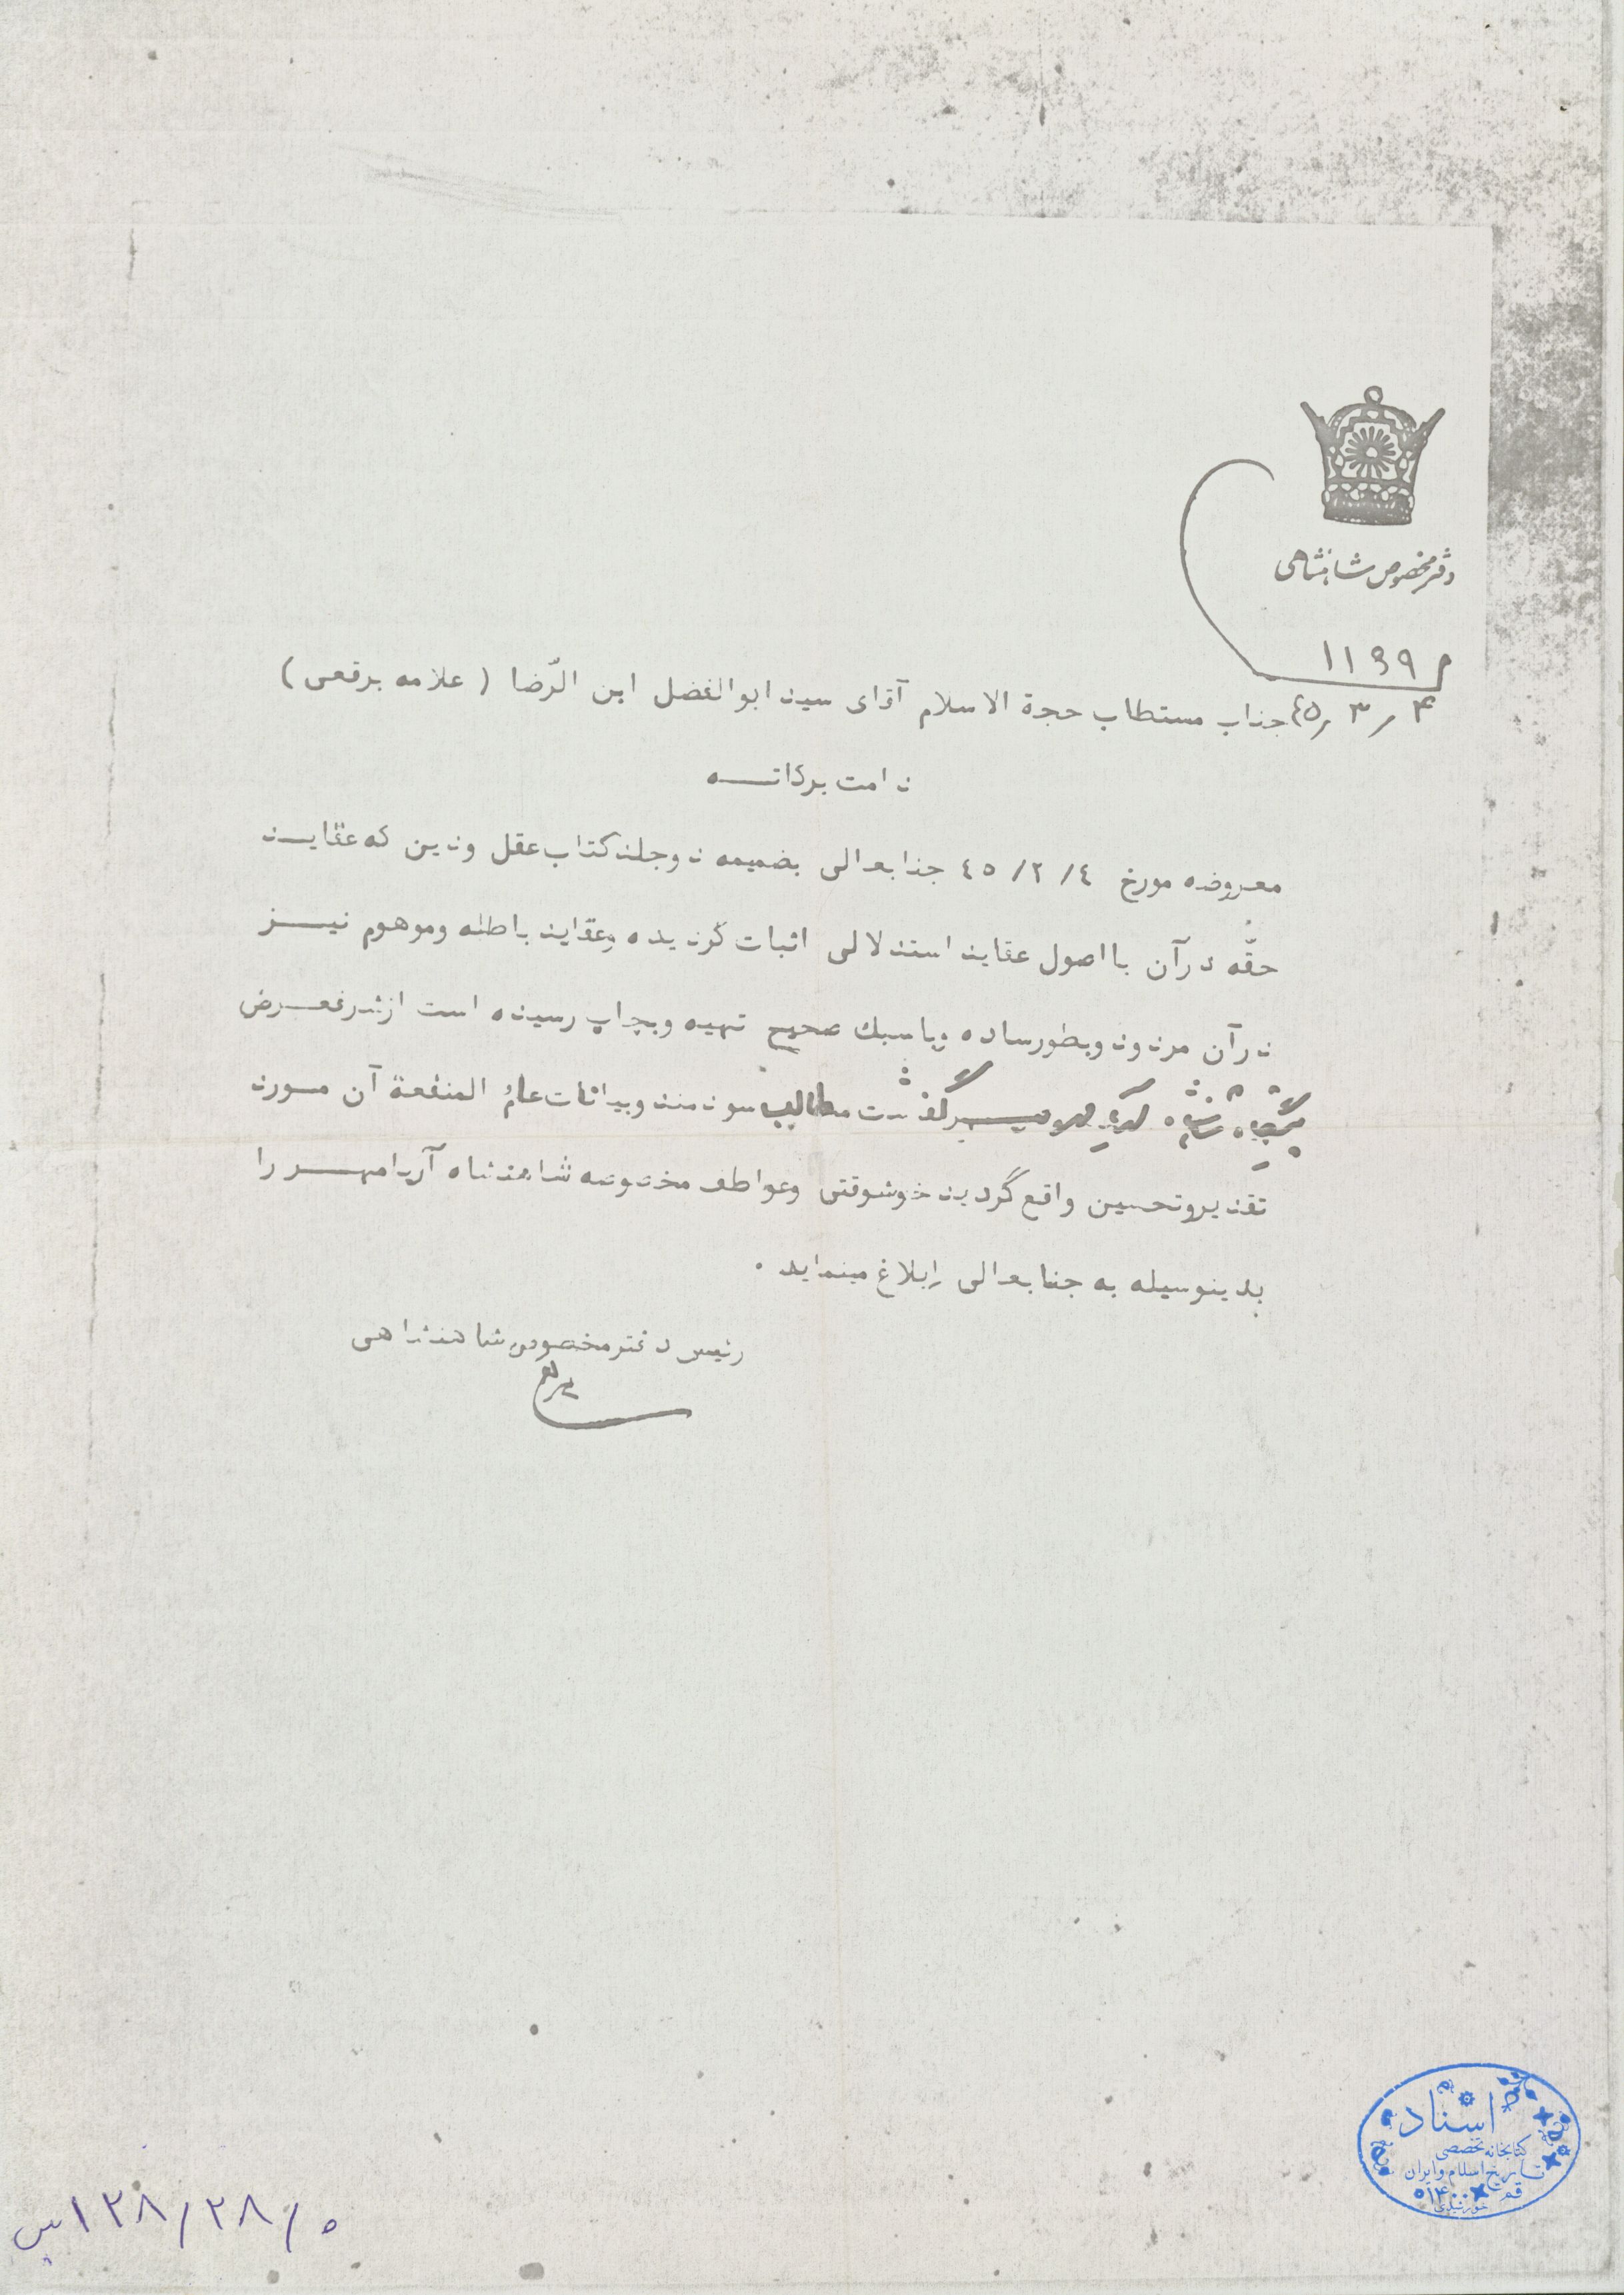 دفتر مخصوص شاهنشاهی
م ۱۱۶۹
۴ ر ۳ ر ٤٥
جناب مستطاب حجة الاسلام آقای سید ابوالفضل ابن الرّضا ( علامه برقعی )
دامت برکاتــه
معروضه مورخ ٤ /۲ /٤٥ جنابعالی بضمیمه دوجلد کتاب عقل ودین که عقایــد
حقّه درآن با اصول عقاید استدلالی اثبات گردیده وعقاید باطله وموهوم نیــز
درآن مردود وبطورساده وباسبك صحیح تهیه وبچاپ رسیده است ازشرفعــرض
پیشگاه گذشت مطالب سودمند وبیانات عام المنفعة آن مــورد
تقدیروتحسین واقع گردید خوشوقتی وعواطف مخصوصه شاهنشاه آریامهــر را
بدینوسیله به جنابعالی ابلاغ مینماید .
رئیس دفترمخصوص شاهنشاهی
اسناد
کتابخانه تخصصی
تاریخ اسلام و ایران
قم
۱۲۸/۲۸/۰س